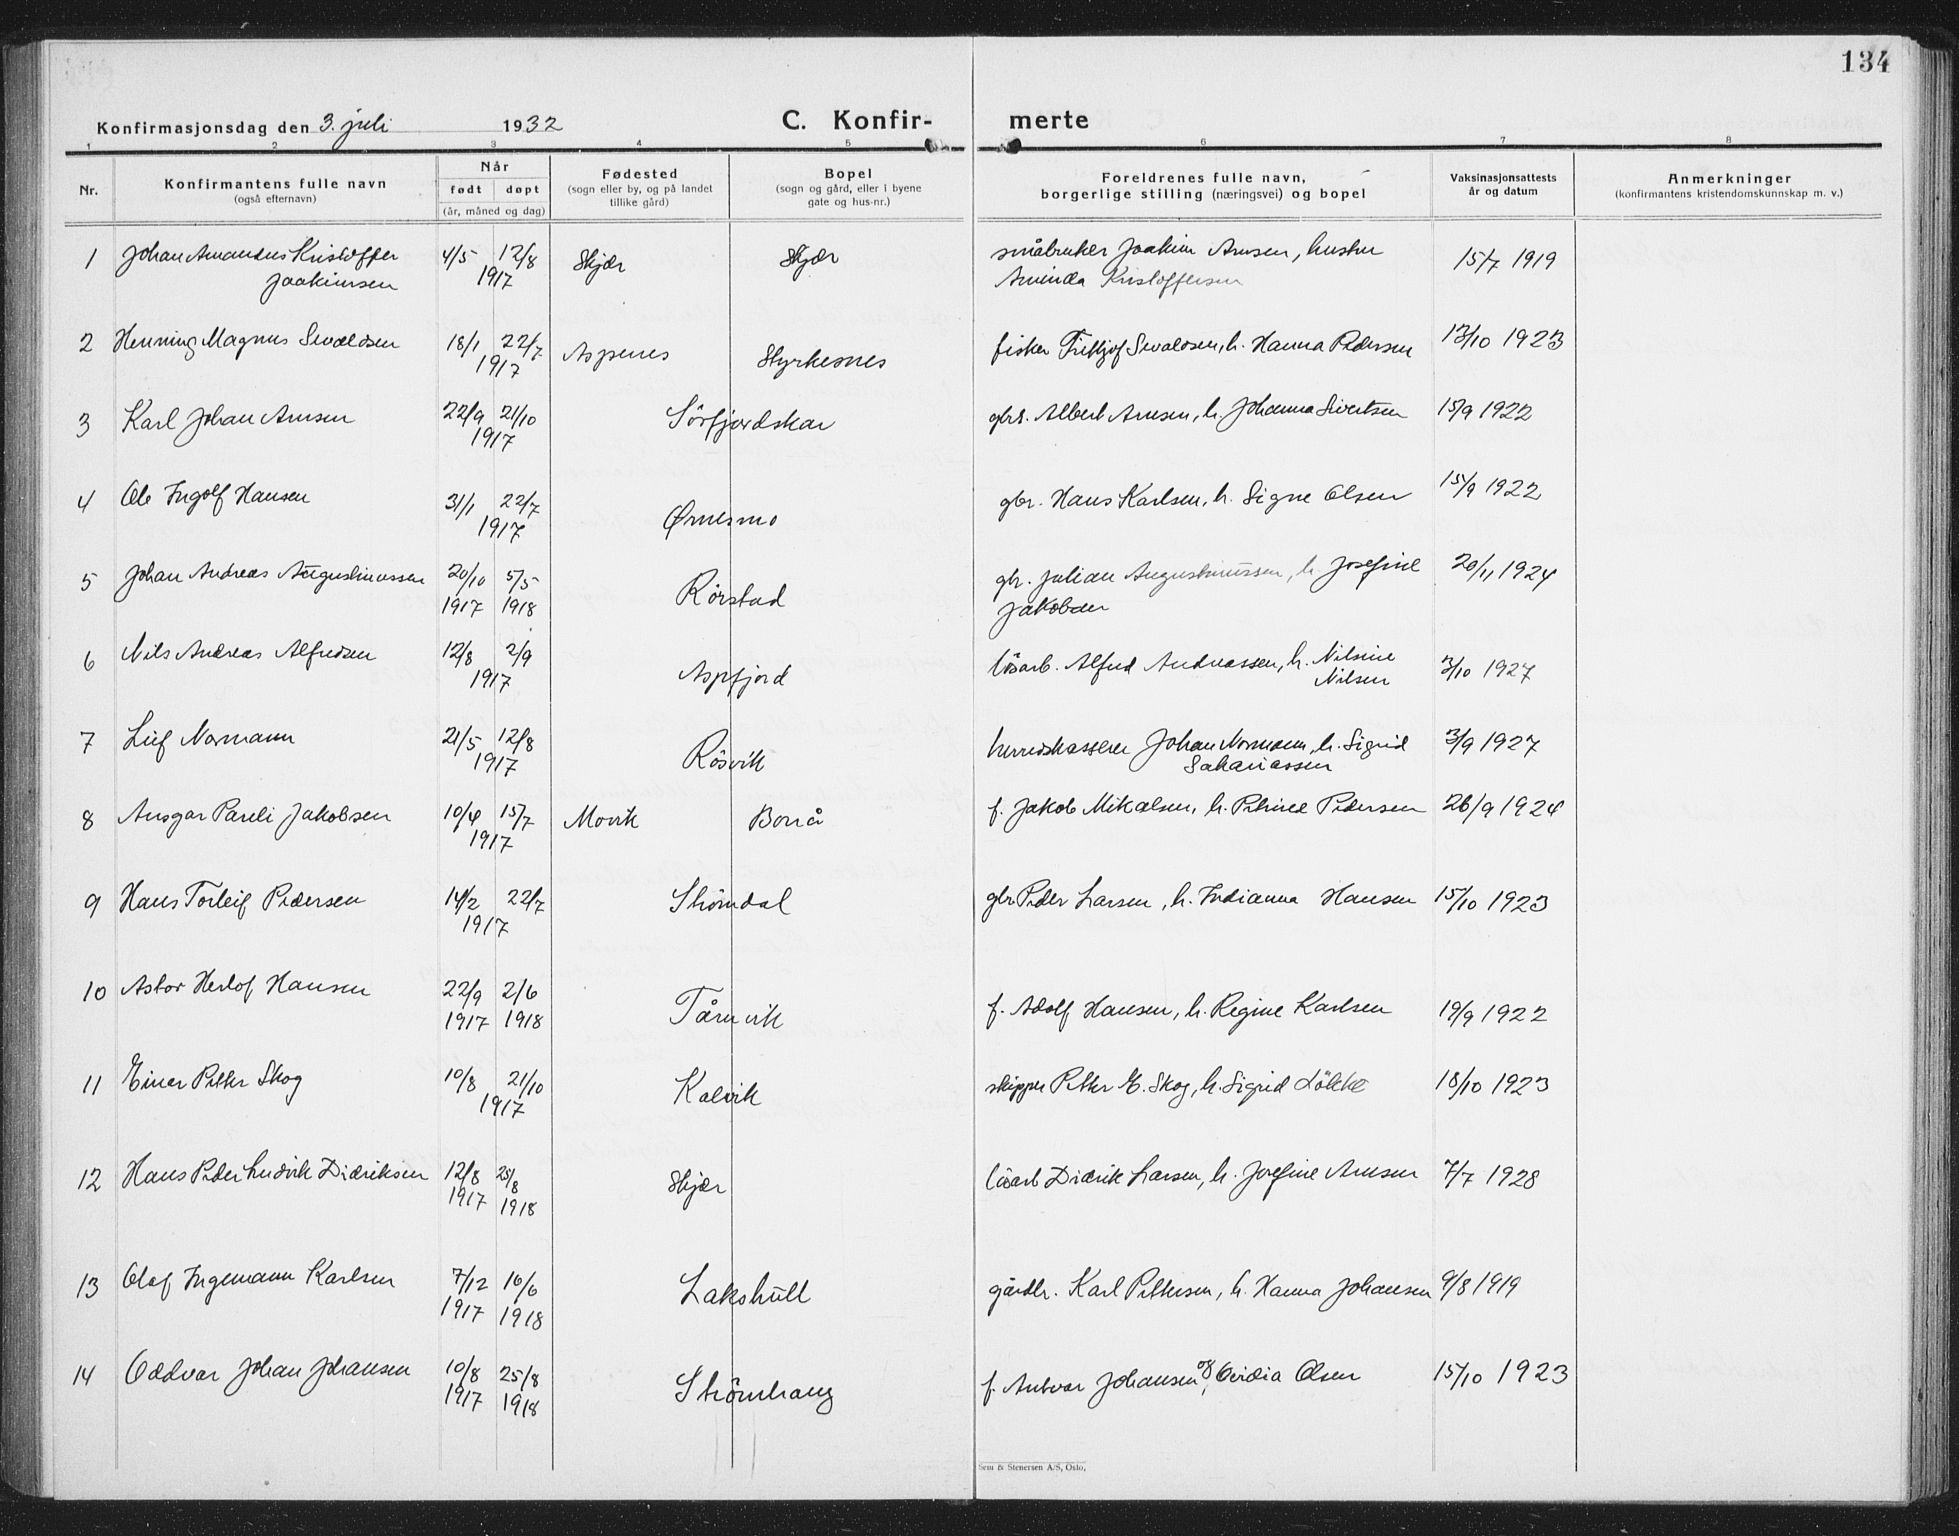 134
Konfirmasjonsdag den 3. juli 1932 C. Konfir- merte
1 2 3 4 5 6 7 8
Nr. Konfirmantens fulle navn (også efternavn) Når født døpt (år, måned og dag) Fødested (sogn eller by, og på landet tillike gård) Bopel (sogn og gård, eller i byene gate og hus-nr.) Foreldrenes fulle navn, borgerlige stilling (næringsvei) og bopel Vaksinasjonsattests år og datum Anmerkninger (konfirmantens kristendomskunnskap m. v.)
1 Johan Amandus Kristoffer 4/5 12/8 Skjær Skjær småbruker Joakim Arnsen, hustru 15/7 1919
Joakimsen 1917 Aminda Kristoffersen
2 Henning Magnus Sivaldsen 18/1 22/7 Aspenes Styrkesnes fisker Fritjof Sivaldsen, h. Hanna Pedersen 13/10 1923
1917
3 Karl Johan Arnsen 22/9 21/10 Sörfjordskar gbr. Albert Arnsen, h. Johanna Sivertsen 15/9 1922
1917
4 Ole Ingolf Hansen 31/1 22/7 Ørnesmo gbr. Hans Karlsen, h. Signe Olsen 15/9 1922
1917
5 Johan Andreas Augustinussen 20/10 5/5 Rörstad gbr. Julian Augustinussen, h. Josefine 20/11 1924
1917 1918 Jakobsen
6 Nils Andreas Alfredsen 12/8 2/9 Aspfjord lösarb. Alfred Andreassen, h. Nilsine 3/10 1927
1917 Nilsen
7 Leif Normann 21/5 12/8 Rösvik herredskasserer Johan Normann, h. Sigrid 3/9 1927
1917 Sakariassen
8 Ansgar Pareli Jakobsen 10/4 15/7 Movik Bonå f. Jakob Mikalsen, h. Petrine Pedersen 26/9 1924
1917
9 Hans Torleif Pedersen 14/2 22/7 Strömdal gbr Peder Larsen, h. Indianna Hansen 15/10 1923
1917
10 Astor Herlof Hansen 22/9 2/6 Tårnvik f. Adolf Hansen, h. Regine Karlsen 19/9 1922
1917 1918
11 Einar Petter Skog 10/8 21/10 Kalvik skipper Petter E. Skog, h. Sigrid Lökke 18/10 1923
1917
12 Hans Peder Ludvik Didriksen 12/8 25/8 Skjær lösarb Didrik Larsen, h. Josefine Arnsen 7/7 1928
1917 1918
13 Olaf Ingemann Karlsen 7/12 16/6 Lakshull gårdbr. Karl Pettersen, h. Hanna Johansen 9/8 1919
1917 1918
14 Oddvar Johan Johansen 10/8 25/8 Strömhaug f. Antvar Johansen og Ovidia Olsen 15/10 1923
1917 1918
Sem & Stenersen A/S, Oslo,